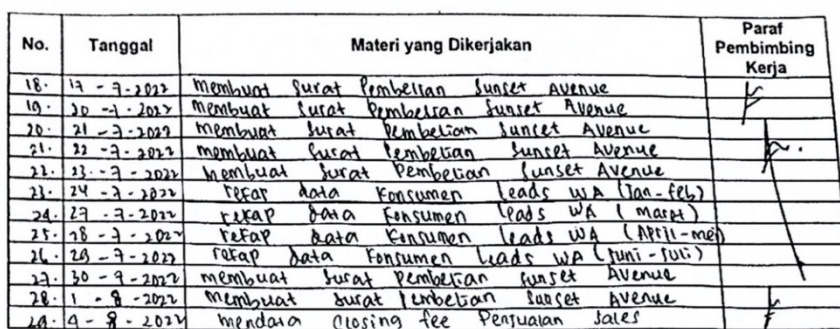 No. Tanggal Materi yang Dikerjakan Paraf Pembimbing Kerja
18. 17 - 7 - 2022 Membuat Surat Pembelian Sunset Avenue
19. 20 - 7 - 2022 Membuat Surat Pembelian Sunset Avenue
20. 21 - 7 - 2022 Membuat Surat Pembelian Sunset Avenue
21. 22 - 7 - 2022 Membuat Surat Pembelian Sunset Avenue
22. 23 - 7 - 2022 Membuat Surat Pembelian Sunset Avenue
23. 24 - 7 - 2022 rekap data Konsumen Leads WA (Jan - Feb)
24. 27 - 7 - 2022 rekap data Konsumen Leads WA (maret)
25. 28 - 7 - 2022 rekap data Konsumen Leads WA (April - mei)
26. 29 - 7 - 2022 rekap data Konsumen Leads WA (Juni - Juli)
27. 30 - 7 - 2022 membuat Surat Pembelian Sunset Avenue
28. 1 - 8 - 2022 Membuat Surat Pembelian Sunset Avenue
29. 4 - 8 - 2022 Mendata Closing fee Penjualan Sales